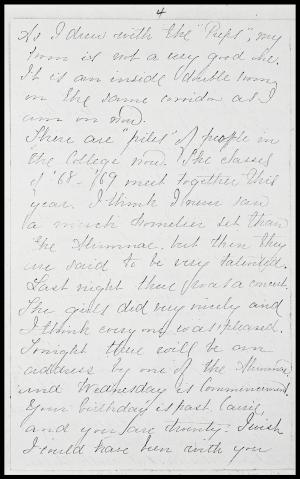 4
As I drew with the "Preps", my
room is not a very good one.
It is an inside double room,
on the same corridor as I
am on now.
There are "piles" of people in
the College now. The classes
of '68 - '69 meet together this
year. I think I never saw
a much homelier set than
the Alumnae. but then they
are said to be very talented.
Last night there was a concert.
The girls did very nicely and
I think every one was pleased.
Tonight there will be an
address by one of the Alumnae
and Wednesday is Commencement.
Your birthday is past, Carrie,
and you are twenty. I wish
I could have been with you